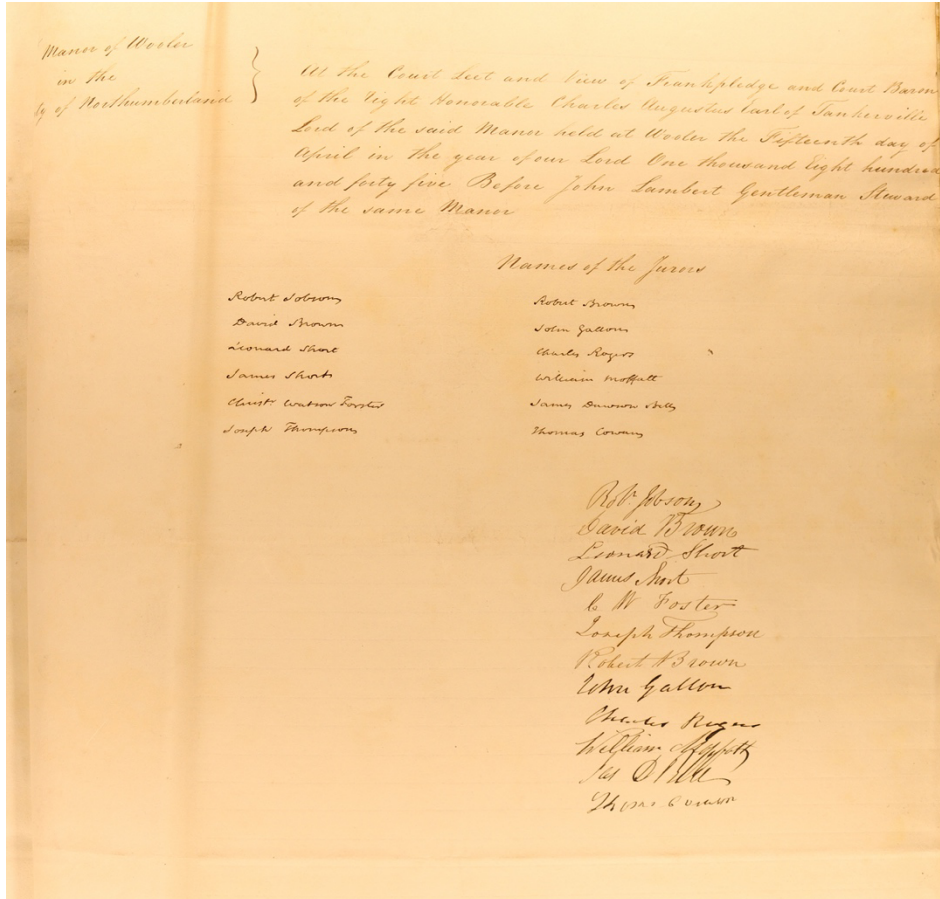 Manor of Wooler
in the
of Northumberland
At the Court Leet and View of Frankpledge and Court Baron
of the Right Honorable Charles Augustus Earl of Tankerville
Lord of the said Manor held at Wooler the Fifteenth day of
April in the year of our Lord One thousand Eight hundred
and forty five Before John Lambert Gentleman Steward
of the same Manor
Names of the Jurors
Robert Jobson
David Brown
Leonard Short
James Short
Christr. Watson Forster
Joseph Thompson
Robert Brown
John Gallon
Charles Rogers
William Moffatt
James Dawson Bell
Thomas Cowan
Robt. Jobson
David Brown
Leonard Short
James Short
C W Foster
Joseph Thompson
Robert Brown
John Gallon
Charles Rogers
William Moffatt
Jas D Bell
Thomas Cowan